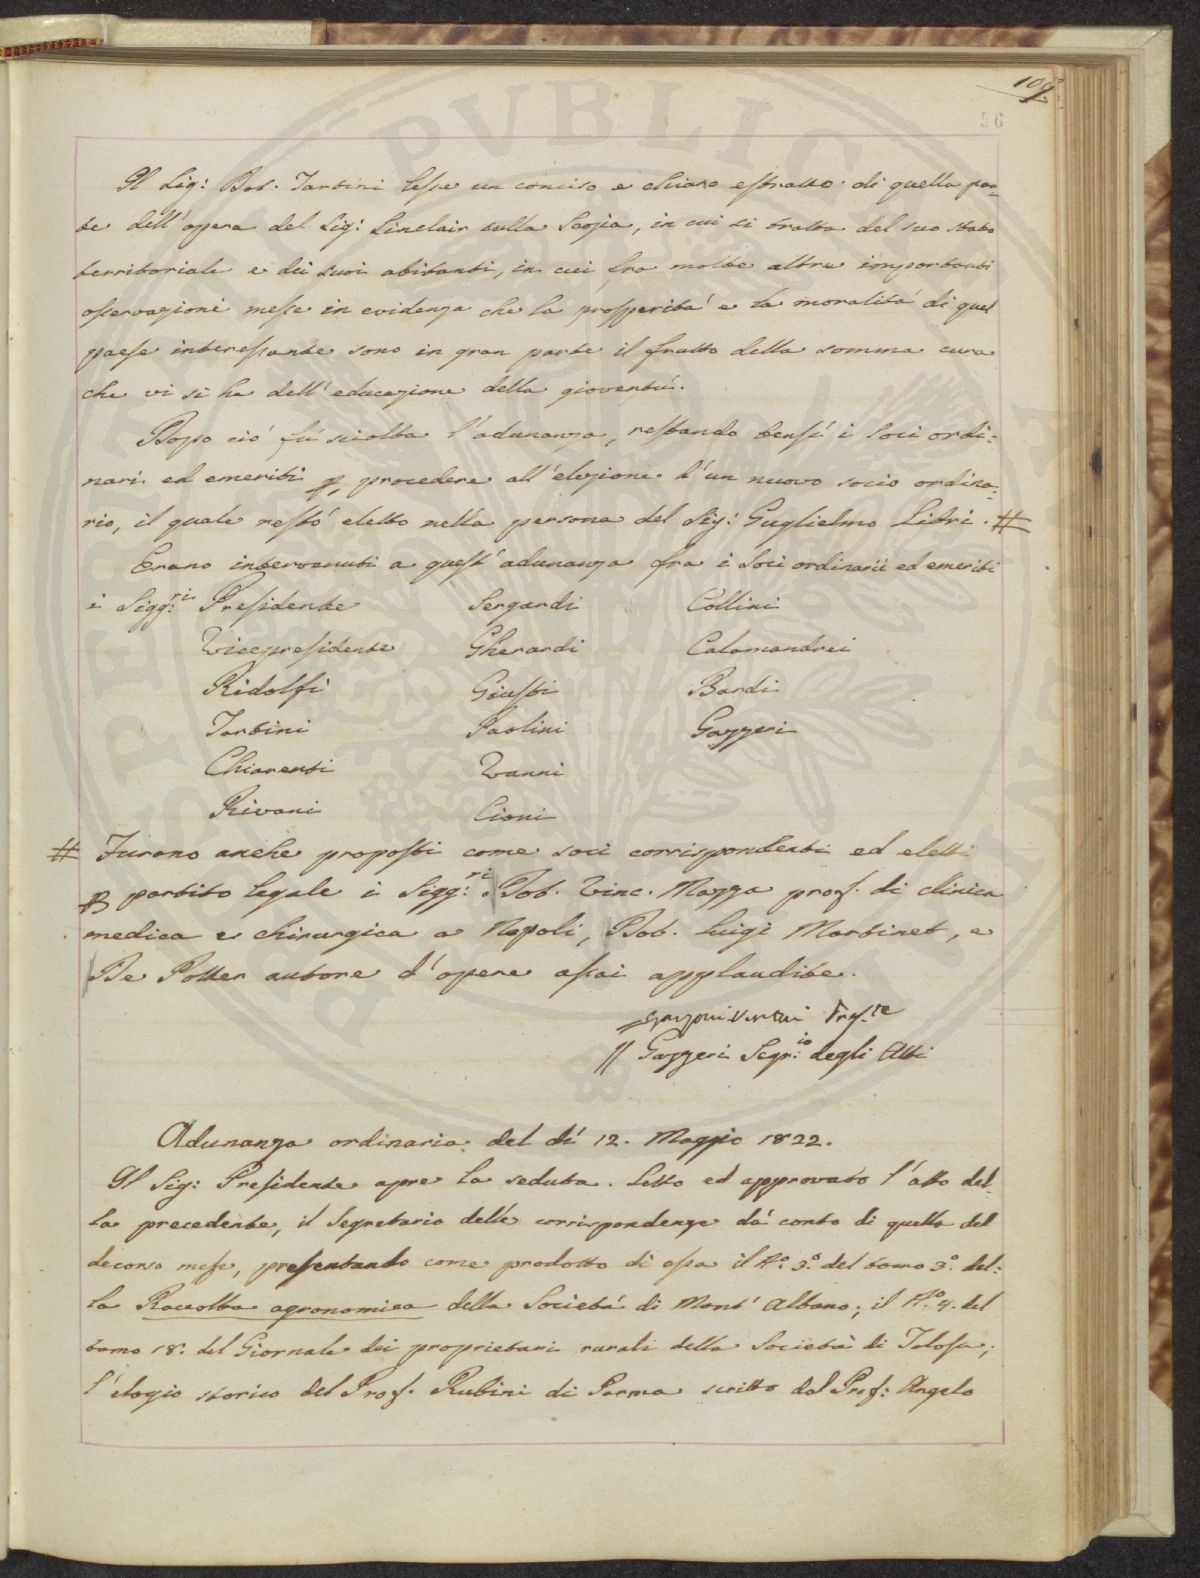 109
56
Il Sig: Dot. Tartini lesse un conciso e chiaro estratto di quella par=
te dell'opera del Sig: Sinclair sulla Scozia, in cui si tratta del suo stato
territoriale e dei suoi abitanti, in cui fra molte altre importanti
osservazioni messe in evidenza che la prosperità e la moralità di quel
paese interessante sono in gran parte il frutto della somma cura
che vi si ha dell'educazione della gioventù.
Dopo ciò fù sciolta l'adunanza, restando bensì i Soci ordi=
nari ed emeriti p. procedere all'elezione d'un nuovo socio ordina=
rio, il quale restò eletto nella persona del Sig: Guglielmo Libri. #
Erano intervenuti a quest'adunanza fra i Soci ordinarii ed emeriti
i Sigg:ri Presidente Sergardi Collini
Vicepresidente Gherardi Calamandrei
Ridolfi Giusti Bardi
Tartini Paolini Gazzeri
Chiarenti Vanni
Rivani Cioni
# Furono anche proposti come soci corrispondenti ed eletti
p partito legale i Sigg:ri Dot. Vinc. Mazza prof. di clinica
medica e chirurgica a Napoli, Dot. Luigi Martinet, e
De Potter autore d'opere assai applaudite.
Pres.te
// Gazzeri Segr:io degli Atti
Adunanza ordinaria del dì 12. Maggio 1822.
Il Sig: Presidente apre la seduta. Letto ed approvato l'atto del=
la precedente, il Segretario delle corrispondenze dà conto di quella del
decorso mese, presentando come prodotto di essa il N.º 3.º del tomo 3.º del=
la Raccolta agronomica della Società di Mont'Albano; il N.º 4. del
tomo 18. del Giornale dei proprietari rurali della Società di Tolosa;
l'elogio storico del Prof. Rubini di Parma scritto dal Prof: Angelo